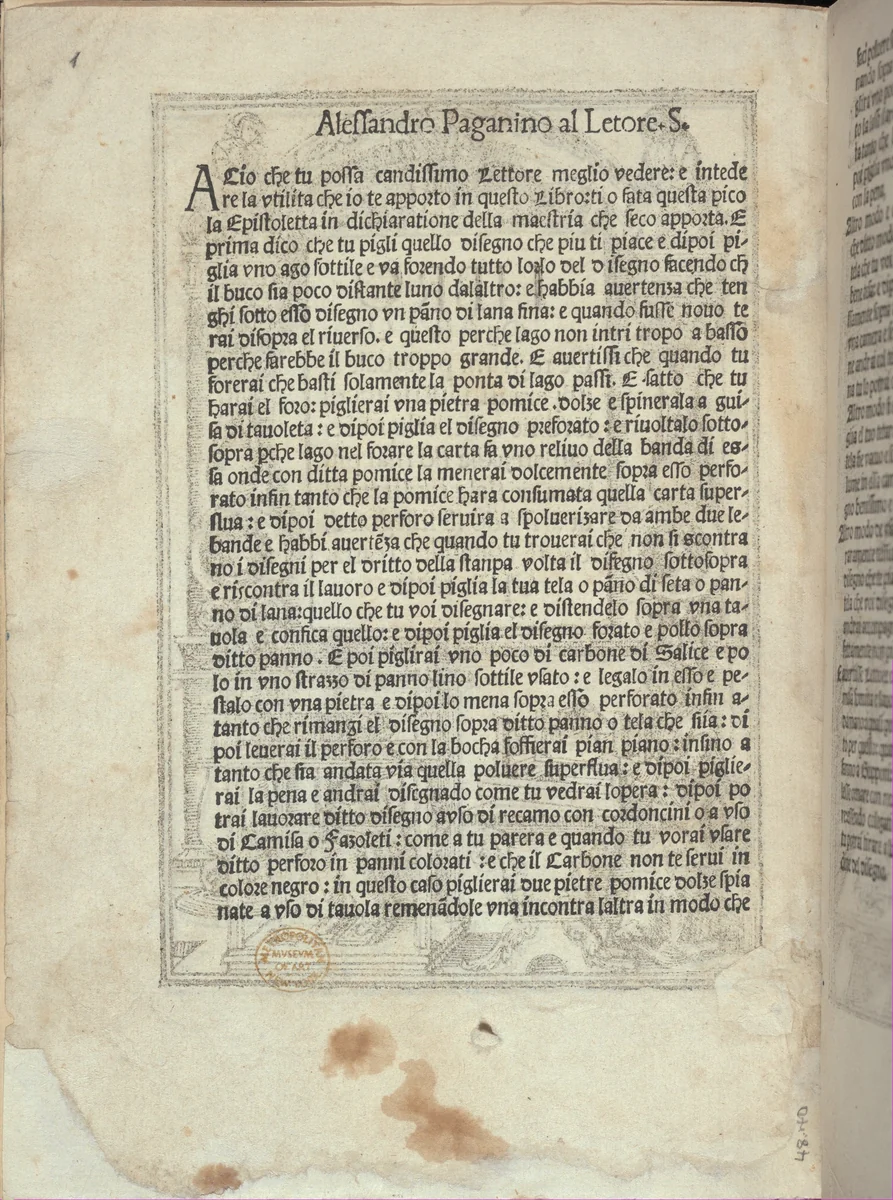 1
Alessandro Paganino al Letore. S.
ACio che tu possa candissimo Lettore meglio vedere: e intede
re la vtilita che io te apporto in questo Libro:ti o fata questa pico
la Epistoletta in dichiaratione della maestria che seco apporta. E
prima dico che tu pigli quello disegno che piu ti piace e dipoi pi-
glia vno ago sottile e va forendo tutto lorlo del disegno facendo ch
il buco sia poco distante luno dalaltro: e habbia auertenza che ten
ghi sotto esso disegno vn pãno di lana fina: e quando fusse nouo te
rai disopra el riuerso. e questo perche lago non intri tropo a basso
perche farebbe il buco troppo grande. E auertissi che quando tu
forerai che basti solamente la ponta di lago passi. E fatto che tu
harai el foro: piglierai vna pietra pomice .dolze e spinerala a gui-
sa di tauoleta : e dipoi piglia el disegno preforato : e riuoltalo sotto-
sopra pche lago nel forare la carta fa vno reliuo della banda di es-
sa onde con ditta pomice la menerai dolcemente sopra esso perfo-
rato infin tanto che la pomice hara consumata quella carta super-
flua : e dipoi detto perforo seruira a spoluerizare da ambe due le-
bande e habbi auertẽza che quando tu trouerai che non si scontra
no i disegni per el dritto della stanpa volta il disegno sottosopra
e riscontra il lauoro e dipoi piglia la tua tela o pãno di seta o pan-
no di lana:quello che tu voi disegnare: e distendelo sopra vna ta-
uola e confica quello: e dipoi piglia el disegno forato e pollo sopra
ditto panno . E poi piglirai vno poco di carbone di Salice e po
lo in vno strazzo di panno lino sottile vsato : e legalo in esso e pe-
stalo con vna pietra e dipoi lo mena sopra esso perforato infin a-
tanto che rimangi el disegno sopra ditto panno o tela che siia : di
poi leuerai il perforo e con la bocha soffierai pian piano : insino a
tanto che sia andata via quella poluere superflua : e dipoi piglie-
rai la pena e andrai disegnado come tu vedrai lopera : dipoi po
trai lauorare ditto disegno avso di recamo con cordoncini o a vso
di Camisa o Fazoleti : come a tu parera e quando tu vorai vsare
ditto perforo in panni colorati : e che il Carbone non te serui in
colore negro : in questo caso piglierai due pietre pomice dolze spia
nate a vso di tauola remenãdole vna incontra laltra in modo che
METROPOLITAN
MVSEVM
OF ART
48.40